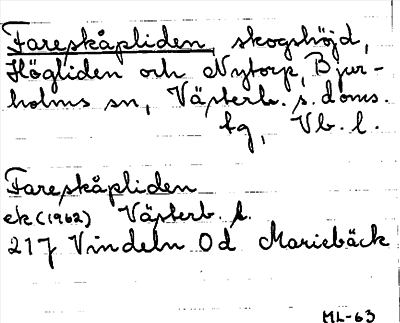 Fareskåpliden, skogshöjd,
Högliden och Nytorp, Bjur-
holms sn, Västerb. s. doms.
tg, Vb. l.
Fareskåpliden
ek (1962) Västerb. l.
21J Vindeln Od Mariebäck
ML-63